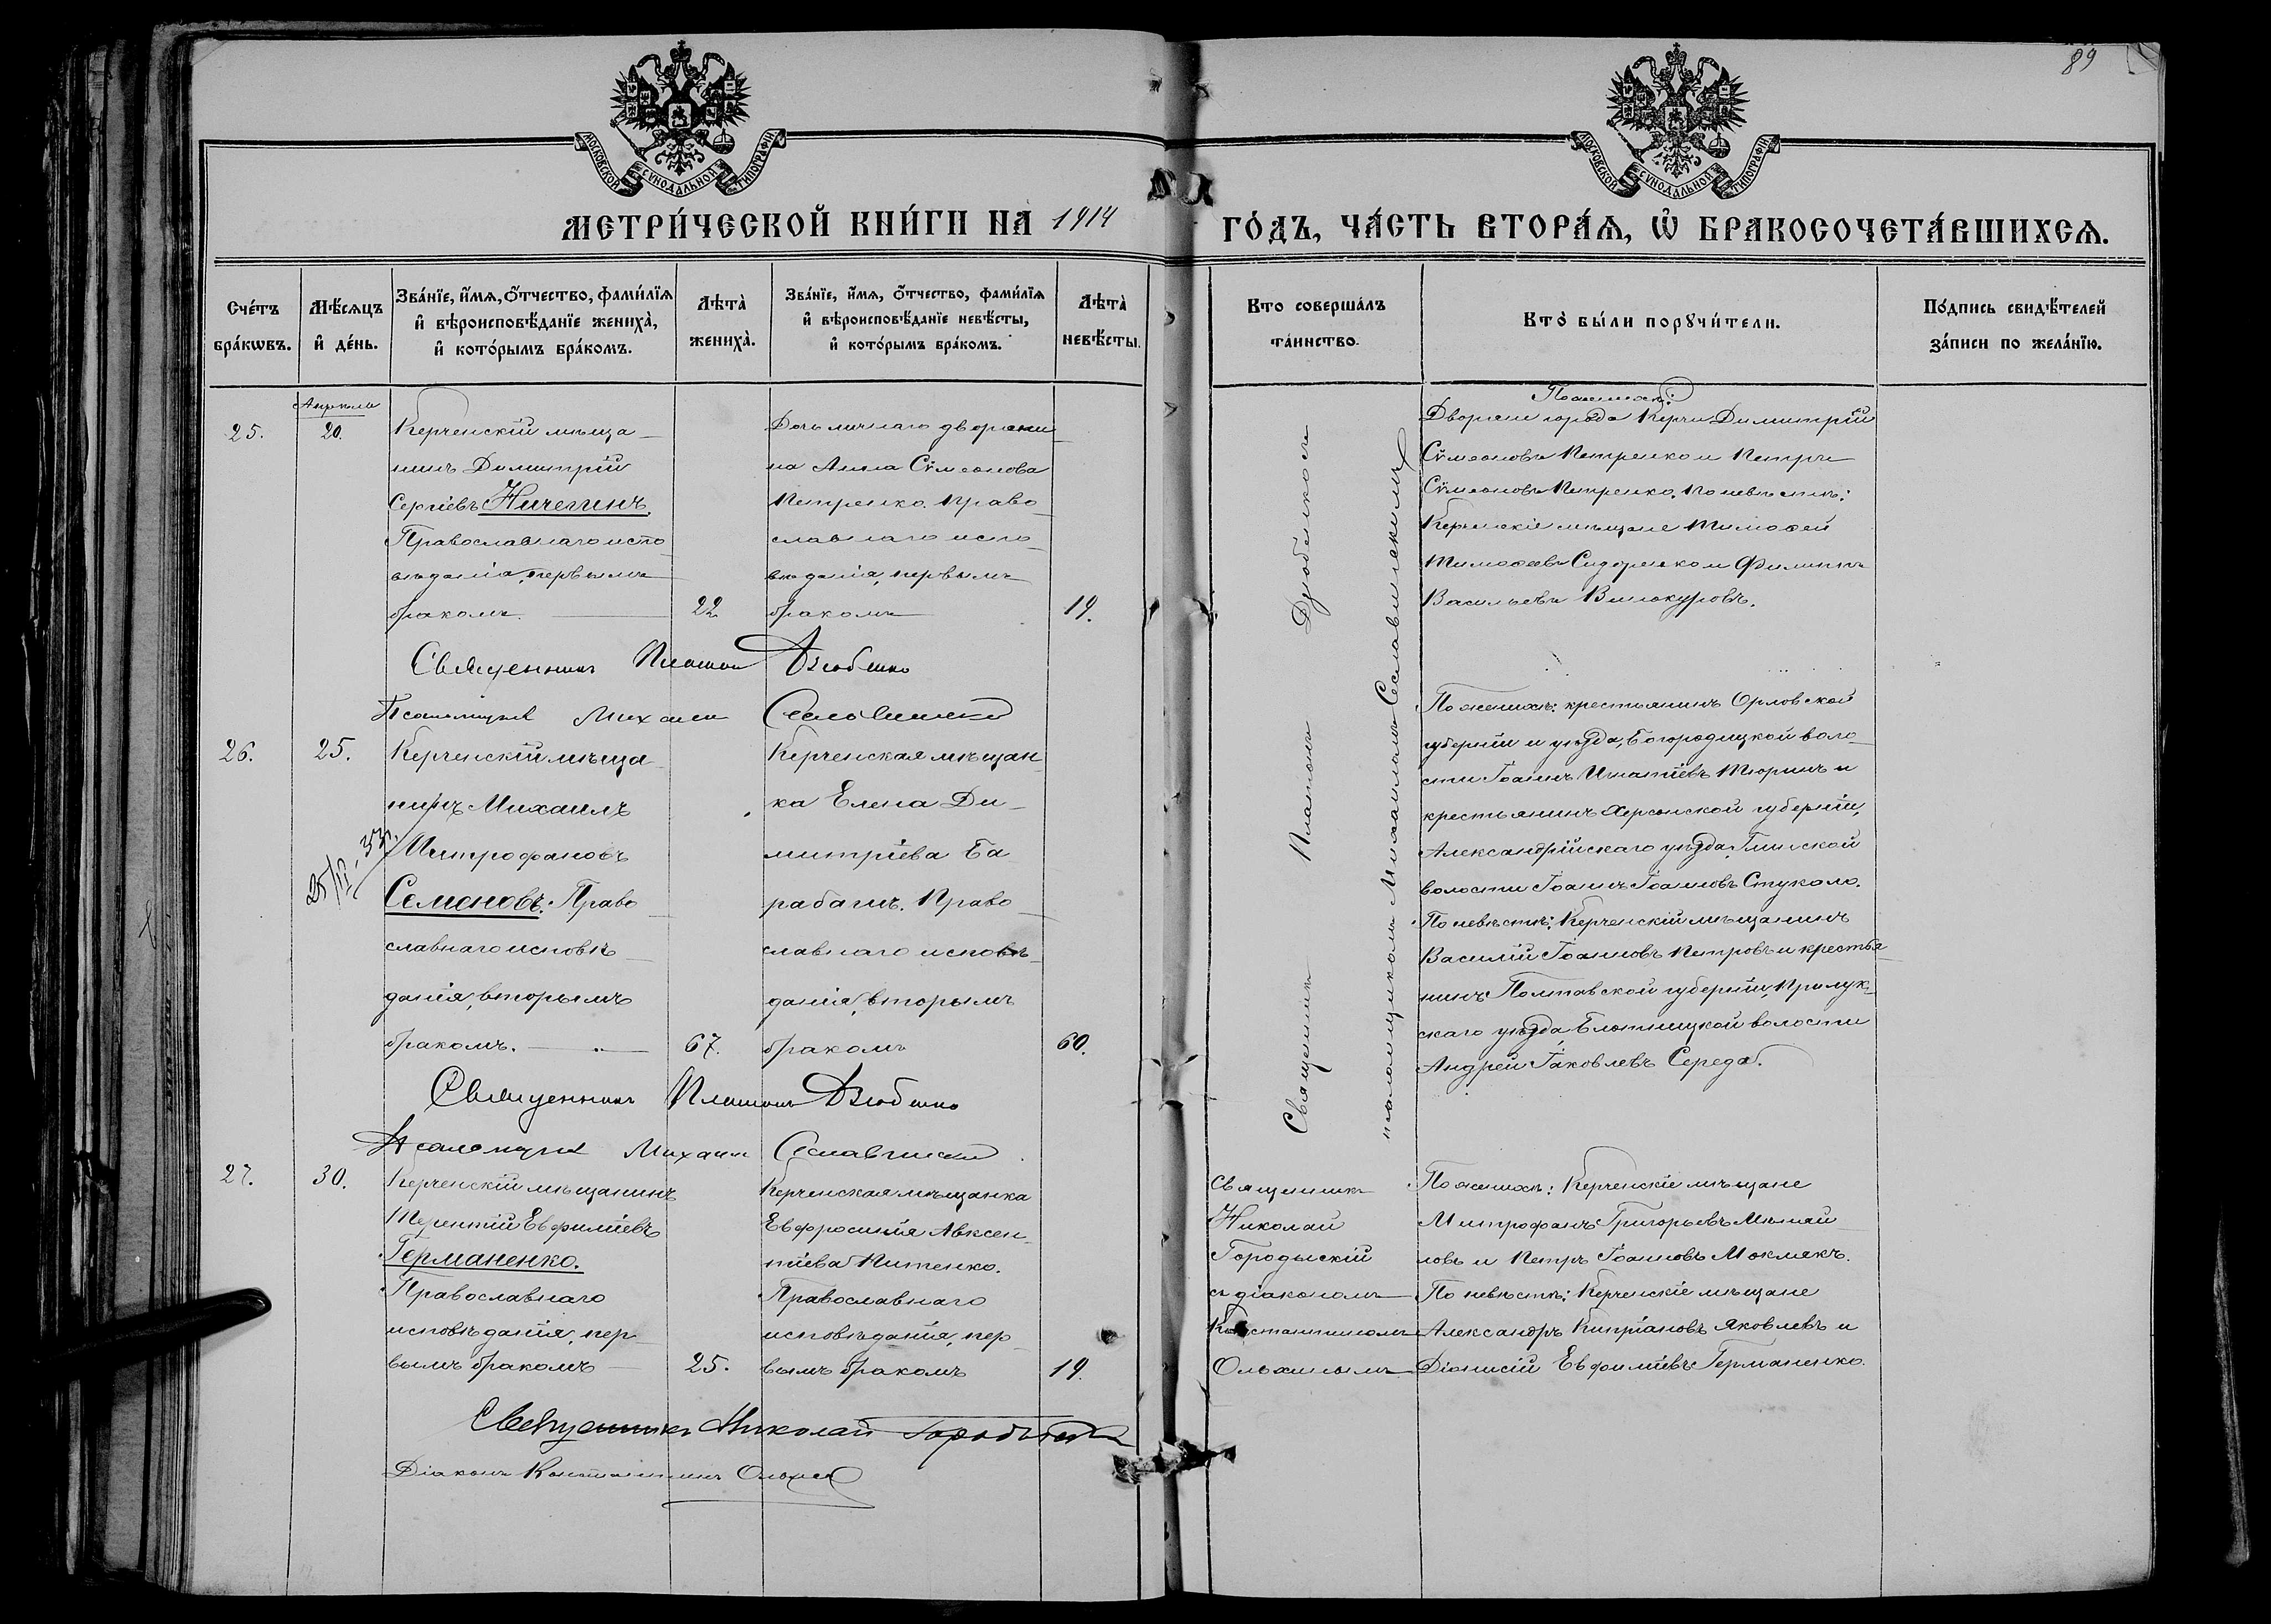 89
МОСКОВСКОЙ СѴНОДАЛЬНОЙ ТИПОГРАФІИ
МОСКОВСКОЙ СѴНОДАЛЬНОЙ ТИПОГРАФІИ
МЕТРИ́ЧЕСКОЙ КНИ́ГИ НА 1914
ГО́ДЪ, ЧА́СТЬ ВТОРА́Ѧ, Ѡ҆ БРАКОСОЧЕТА́ВШИХСѦ.
Сче́тъ
бра́кѡвъ.
Мѣ́сѧцъ
и҆ де́нь.
Зва́нїе, и҆́мѧ, ѻ҆́тчество, фами́лїѧ
и҆ вѣроисповѣ́данїе жениха̀,
и҆ кото́рымъ бра́комъ.
Лѣта̀
жениха̀.
Зва́нїе, и҆́мѧ, ѻ҆́тчество, фами́лїѧ
и҆ вѣроисповѣ́данїе невѣ́сты,
и҆ кото́рымъ бра́комъ.
Лѣта̀
невѣ́сты.
Кто соверша́лъ
та́инство.
Кто̀ бы́ли порꙋчи́тели.
По́дпись свидѣ́телей
за́писи по жела́нїю.
25.
Апрѣля
20.
Керченскій мѣща-
нинъ Димитрій
Сергіевъ Ничегинъ.
Православнаго испо-
вѣданія, первымъ
бракомъ.
22
Дочь личнаго дворяни-
на Анна Сѵмеонова
Петренко. Право-
славнаго испо-
вѣданія, первымъ
бракомъ
19.
По женихѣ:
Дворяне города Керчи Димитрій
Сѵмеоновъ Петренко и Петръ
Сѵмеоновъ Петренко. По невѣстѣ:
Керченскіе мѣщане Тимоѳей
Тимоѳеевъ Сидоренко и Филиппъ
Васильевъ Винокуровъ.
Священникъ Платонъ Дзюбенко
Псаломщикъ Михаилъ Сеславинскій
26.
25.
25/II. 33.
Керченскій мѣща-
нинъ Михаилъ
Митрофановъ
Семеновъ. Право-
славнаго исповѣ-
данія, вторымъ
бракомъ.
67.
Керченская мѣщан-
ка Елена Ди-
митріева Ба-
рабашъ. Право-
славнаго исповѣ-
данія, вторымъ
бракомъ
60.
Священникъ Платонъ Дзюбенко съ
псаломщикомъ Михаиломъ Сеславинскимъ
По женихѣ: крестьянинъ Орловской
губерніи и уѣзда, Богородицкой воло-
сти Іоаннъ Игнатіевъ Тюринъ и
крестьянинъ Херсонской губерніи,
Александрійскаго уѣзда, Глинской
волости Іоаннъ Іоанновъ Стукало.
По невѣстѣ: Керченскій мѣщанинъ
Василій Іоанновъ Петровъ и крестья-
нинъ Полтавской губерніи, Прилук-
скаго уѣзда, Блотницкой волости
Андрей Іаковлевъ Середа.
Священникъ Платонъ Дзюбенко
Псаломщикъ Михаилъ Сеславинскій
27.
30.
Керченскій мѣщанинъ
Терентій Евфиміевъ
Германенко.
Православнаго
исповѣданія, пер-
вымъ бракомъ
25.
Керченская мѣщанка
Евфросинія Авксен-
тіева Питенко.
Православнаго
исповѣданія, пер-
вымъ бракомъ
19.
Священникъ
Николай
Городыскій
съ діакономъ
Константиномъ
Ольхинымъ
По женихѣ: Керченскіе мѣщане
Митрофанъ Григорьевъ Минай-
ловъ и Петръ Іоанновъ Мокмакъ.
По невѣстѣ: Керченскіе мѣщане
Александръ Кипріановъ Яковлевъ и
Діонисій Евфиміевъ Германенко.
Священникъ Николай Городыскій
Діаконъ Константинъ Ольхинъ